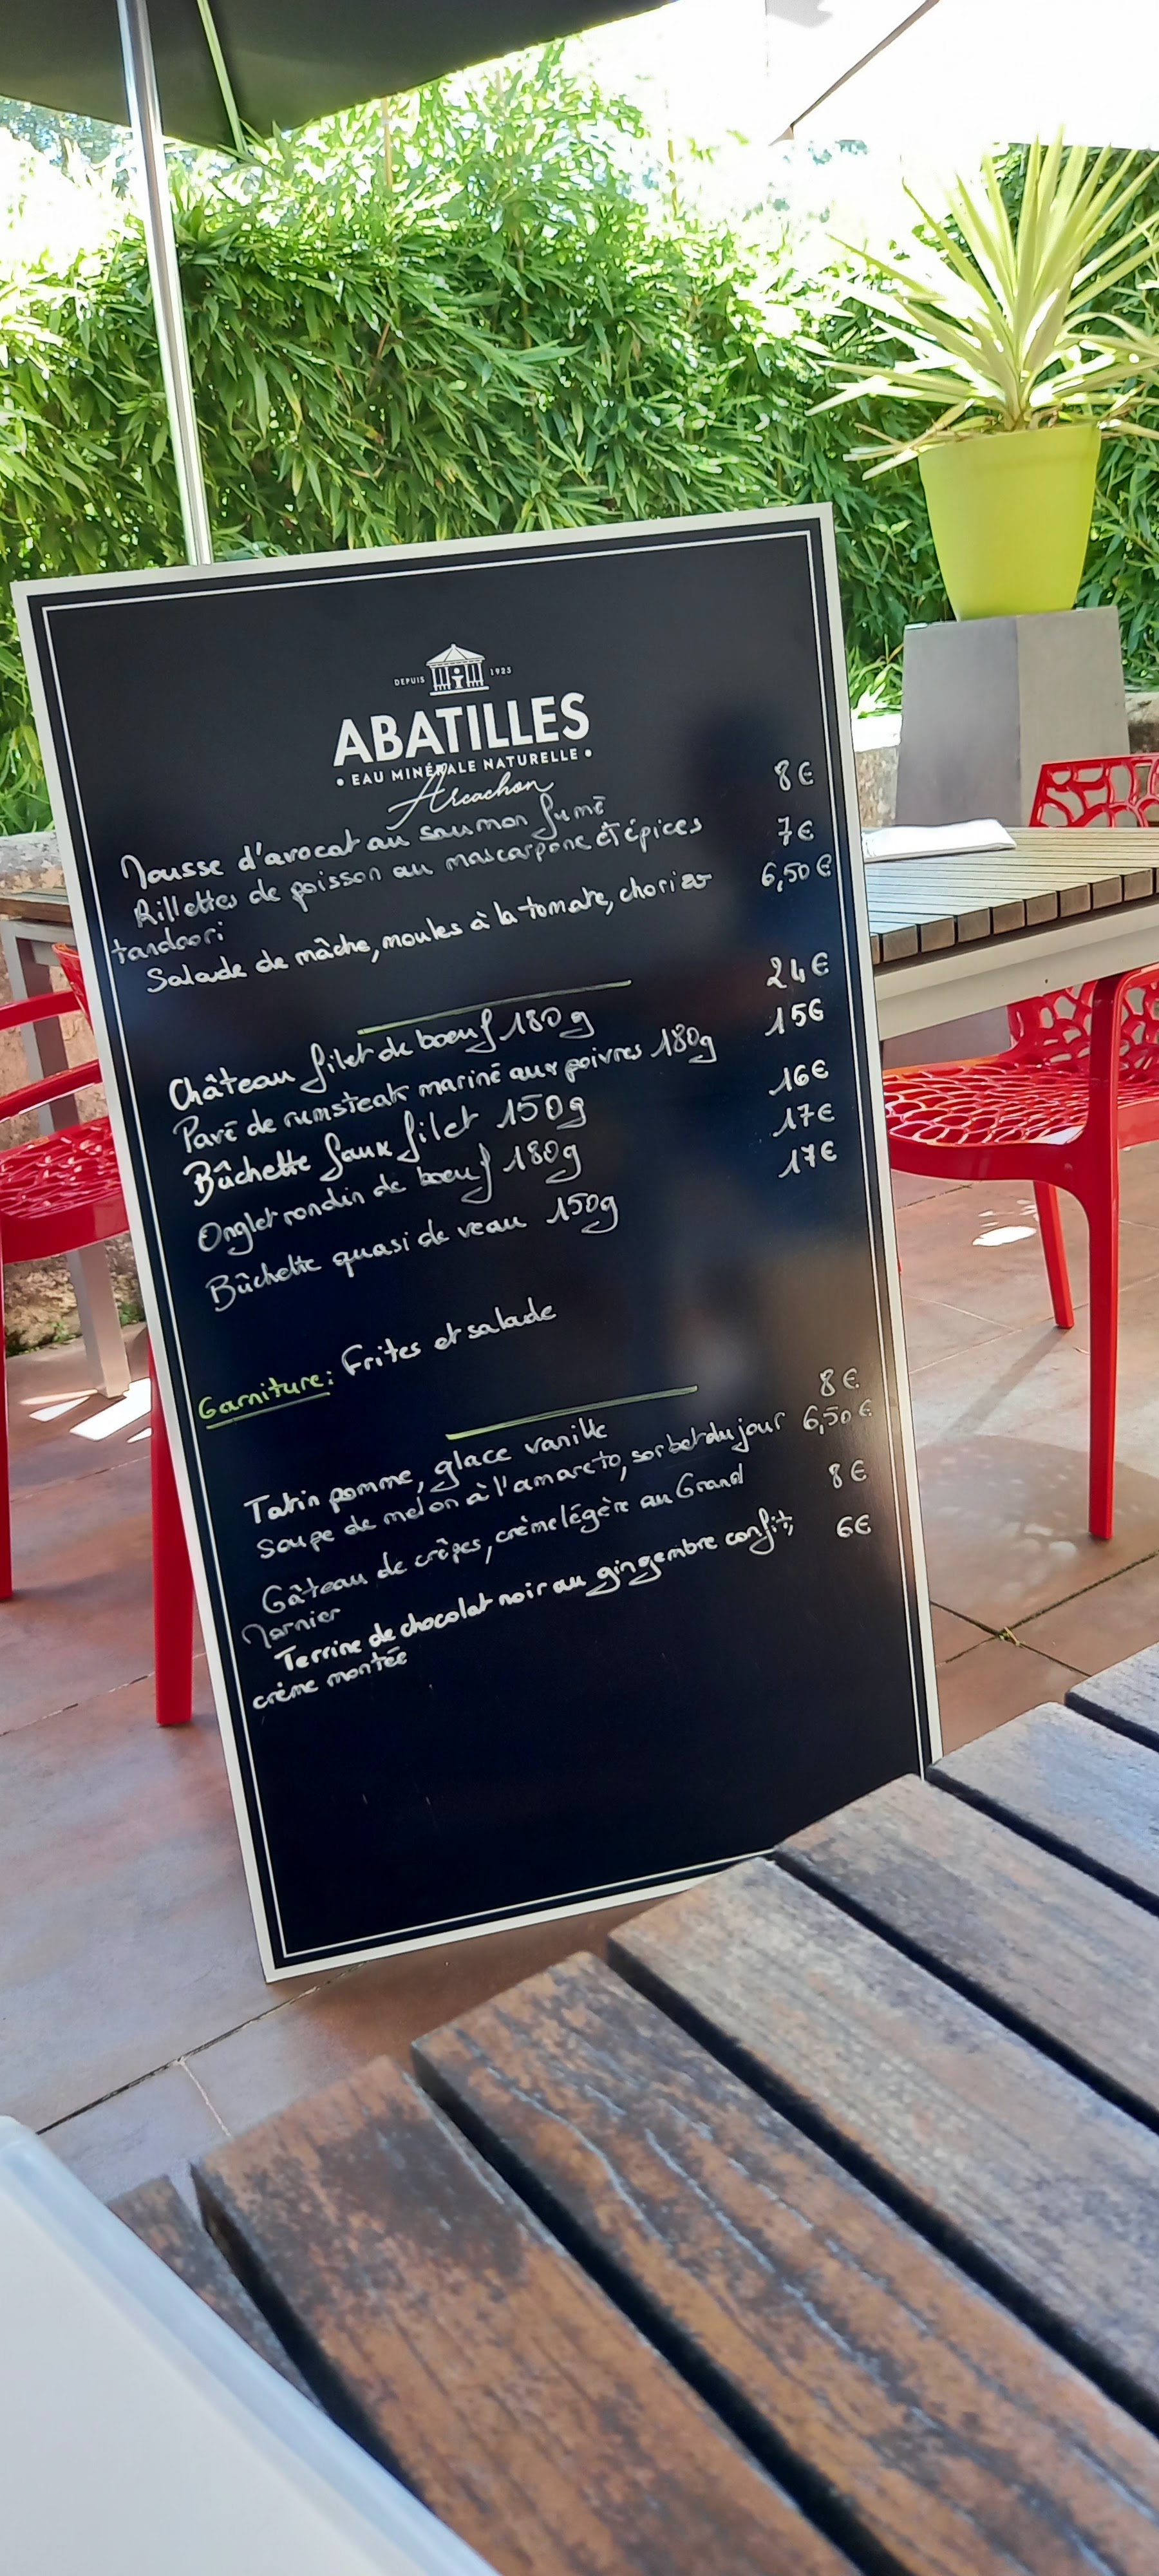 DEPUIS 1925
ABATILLES
• EAU MINÉRALE NATURELLE •
Arcachon
Mousse d'avocat au saumon fumé 8€
Rillettes de poisson au mascarpone et épices 7€
tandoori
Salade de mâche, moules à la tomate, chorizo 6,50€
Château filet de boeuf 180g 24€
Pavé de rumsteak mariné aux poivres 180g 15€
Bûchette faux filet 150g 16€
Onglet rondin de boeuf 180g 17€
Bûchette quasi de veau 150g 17€
Garniture: Frites et salade
Tatin pomme, glace vanille 8€
Soupe de melon à l'amareto, sorbet du jour 6,50€
Gâteau de crêpes, crème légère au Grand 8€
Marnier
Terrine de chocolat noir au gingembre confit, 6€
crème montée